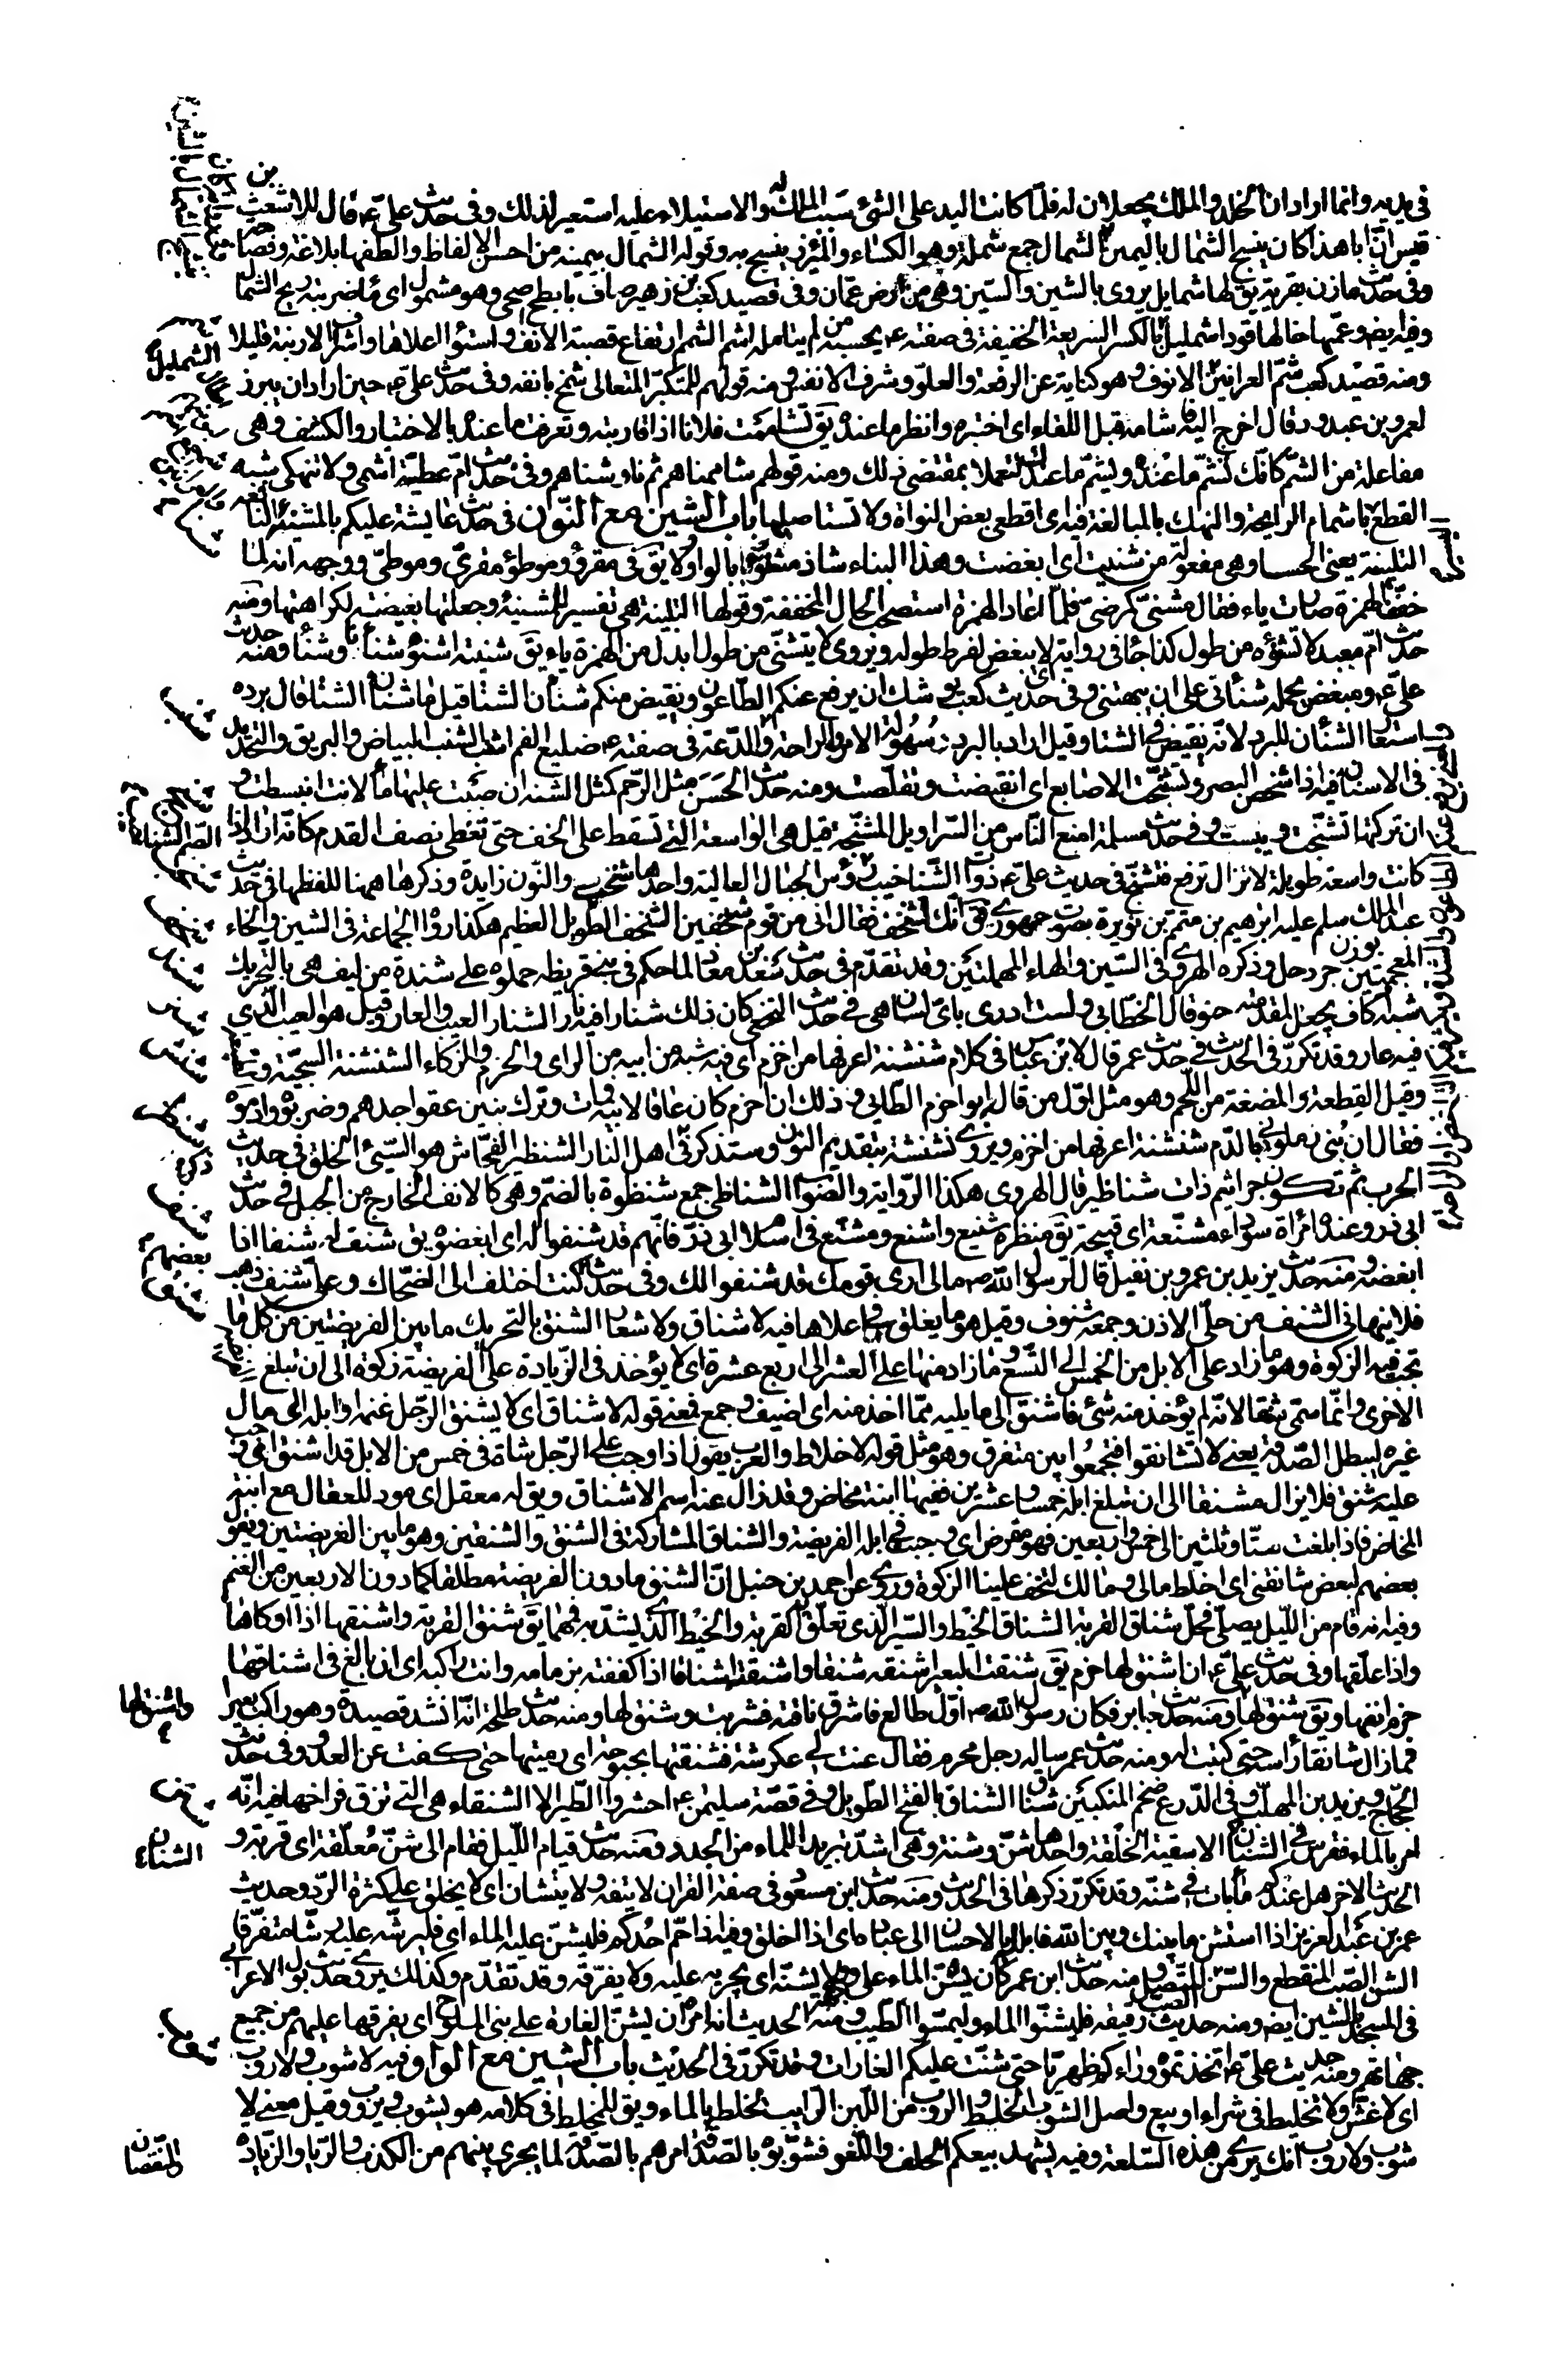 في يديه وانما اراد ان الخلد والملك يجعلان له فلما كانت اليد على الشئ سبب الملك له والاستيلاء عليه استعير لذلك وفى حديث علي ع قال للاشعث بن
قيس ان ابا هذا كان ينسج الشمال باليمين الشمال جمع شملة وهو الكساء والمئزر ينسج به وقوله الشمال بيمينه من احسن الالفاظ والطفها بلاغة وفصاحة
وفى حديث مازن بقرية يق لها شمايل يروى بالشين والسين وهى من ارض عمان وفى قصيد كعب بن زهير صاف بابطح اضحى وهو مشمول اى ماء ضربته ريح الشمال
وفيه ايض وعمها خالها قوداء شمليل بالكسر السريعة الخفيفة فى صفته ع يحسبه من لم يتامله اشم الشمم ارتفاع قصبة الانف واستواء اعلاها واشراف الارنبة قليلا
ومنه قصيد كعب شم العرانين الانوف وهو كناية عن الرفعة والعلو وشرف الانفس ومنه قولهم للمتكبر المتعالى شمخ بانفه وفى حديث علي ع حين اراد ان يبرز
لعمرو بن عبدود قال اخرج اليه فاشامه قبل اللقاء اى اختبره وانظر ما عنده يق شاممت فلانا اذا قاربته وتعرفت ما عنده بالاختبار والكشف وهى
مفاعلة من الشم كانك تشم ما عنده ويشم ما عندك لتعملا بمقتضى ذلك ومنه قولهم شاممناهم ثم ناوشناهم وفى حديث ام عطية اشمى ولا تنهكى شبه
القطع باشمام الرايحة والنهك بالمبالغة فيه اى اقطعى بعض النواة ولا تستاصليها باب الشين مع النون فى حديث عايشة عليكم بالمشنيئة النافعة
التلبينة يعنى الحسا وهى مفعولة من شنيت اى ابغضت وهذا البناء شاذ بالواو ولا يق فى مقروء وموطوء مقرى وموطى ووجهه انه لما
خفف الهمزة صارت ياء فقال مشنى كمرضى فلما اعاد الهمزة استصحب الحال المخففة وقولها التلبينة هى تفسير للمشنيئة وجعلتها بغيضة لكراهتها ومنه
حديث ام معبد لا تشنؤه من طول كذا جاء فى رواية اى لا يبغض لفرط طوله ويروى لا يتشنى من طول ابدل من الهمزة ياء يق شنيته اشنؤه شنا وشنانا ومنه حديث
علي ع ومبغض يحمله شنآنى على ان يبهتنى وفى حديث كعب يوشك ان يرفع عنكم الطاعون ويفيض منكم شنآن الشتا قيل ما شنآن الشتا قال برده
استعار الشنآن للبرد لانه بغيض فى الشتا وقيل اراد بالبرد سهولة الامر والراحة والدعة فى صفته ع ضليع الفم اشنب الشنب البياض والبريق والتحديد
فى الاسنان فيه اذا شخص البصر وتشنجت الاصابع اى انقبضت وتقلصت ومنه حديث الحسن مثل الرحم كمثل الشنة ان صببت عليها ماء لانت وانبسطت و
ان تركتها تشنجت ويبست وفى حديث مسلمة امنع الناس من السراويل المشنجة قيل هى الواسعة التى تسقط على الخف حتى تغطى نصف القدم كانه اراد اذا
كانت واسعة طويلة لا تزال ترفع فتشنج فى حديث علي ع ذوات الشناخيب رؤس الجبال العالية واحدها شنخوب والنون زايدة وذكرها ههنا للفظها فى حديث
عبد الملك سلم عليه ابرهيم بن متمم بن نويرة بصوت جهورى فق انك لشنخف فقال انى من قوم شنخفين الشنخف الطويل العظيم هكذا رواه الجماعة فى الشين والخاء
المعجمتين بوزن جردحل وذكره الهروى فى السين والحاء المهملتين وقد تقدم فى حديث سعد بن معاذ لما حكم فى بنى قريظة حملوه على شندة من ليف هى بالتحريك
شبه اكاف يجعل لمقدمته حنو قال الخطابى ولست ادرى باى لسان هى فى حديث النخعى كان ذلك شنارا فيه نار الشنار العيب والعار وقيل هو العيب الذى
فيه عار وقد تكرر فى الحديث فى حديث عمر قال لابن عباس فى كلام شنشنة اعرفها من اخزم اى فيه شبه من ابيه من الراى والحزم والزكاء الشنشنة السجية
وقيل القطعة والمضغة من اللحم وهو مثل اول من قاله ابو اخزم الطائى وذلك ان اخزم كان عاقا لابيه فمات وترك بنين عقوا جدهم وضربوه وادموه
فقال ان بنى زملونى بالدم شنشنة اعرفها من اخزم ويروى نشنشة بتقديم النون وستذكر فى اهل النار الشنظير الفحاش هو السيئ الخلق فى حديث
الحرب ثم تكون جراثيم ذات شناظير قال الهروى هكذا الرواية والصواب الشناظى جمع شنظوة بالضم وهى كالانف الخارج من الجبل فى حديث
ابى ذر وعنده امراة سوداء مشنعة اى قبيحة يق منظر شنيع واشنع ومشنع فى اسلام ابى ذر فانهم قد شنفوا له اى ابغضوه يق شنف له شنفا اذا
ابغضه ومنه حديث يزيد بن عمرو بن نفيل قال لرسول الله ص مالى ارى قومك قد شنفوا لك وفى حديث كنت اختلف الى الضحاك وعلى شنف ذهب
فلا ينهانى الشنف من حلى الاذن وجمعه شنوف وقيل هو ما يعلق فى اعلاها فيه لا شناق ولا شغار الشنق بالتحريك ما بين الفريضتين من كل ما
تجب فيه الزكوة وهو ما زاد على الابل من الخمس الى التسع وما زاد منها على العشر الى اربع عشرة اى لا يؤخذ فى الزيادة على الفريضة زكوة الى ان تبلغ
الاخرى وانما سمى شنقا لانه لم يؤخذ منه شئ فاشنق الى ما يليه مما اخذ منه اى اضيف وجمع فمعنى قوله لا شناق اى لا يشنق الرجل غنمه او ابله الى مال
غيره ليبطل الصدقة يعنى لا تشانقوا فتجمعوا بين متفرق وهو مثل قوله لا خلاط والعرب يقول اذا وجب على الرجل شاة فى خمس من الابل قد اشنق اى وجب
عليه شنق فلا يزال مشنقا الى ان تبلغ ابله خمسا وعشرين ففيها ابنة مخاض وقد زال عنه اسم الاشناق ويق له معقل اى مود للعقال مع ابنة
المخاض فاذا بلغت ستا وثلثين الى خمس واربعين فهو مفرض اى وجبت فى ابله الفريضة والشناق المشاركة فى الشنق والشنقين وهو ما بين الفريضتين ويقول
بعضهم لبعض شانقنى اى اخلط مالى ومالك لتخف علينا الزكوة وروى عن احمد بن حنبل ان الشنق ما دون الفريضة مطلقا كما دون الاربعين من الغنم
وفيه انه قام من الليل يصلى فحل شناق القربة الشناق الخيط والسير الذى تعلق به القربة والخيط الذى يشد به فمها يق شنق القربة واشنقها اذا اوكاها
واذا علقها وفى حديث علي ع ان اشنق لها خرم يق شنقت البعير اشنقه شنقا واشنقته اشناقا اذا كففته بزمامه وانت راكبه اى ان بالغ فى اشناقها
خرم انفها ويق شنق لها ومنه حديث جابر فكان رسول الله ص اول طالع فاشرق ناقته فشربت وشنق لها ومنه حديث طلحة انه انشد قصيدة وهو راكب بعيرا
فما زال شانقا راسه حتى كتبت له ومنه حديث عمر ساله رجل محرم فقال عنت لى عكرشة فشنقتها بجبوبة اى رميتها حتى كفت عن العدو وفى حديث
الحجاج ويزيد بن المهلب وفى الدرع ضخم المنكبين شناق الشناق بالفتح الطويل وفى قصة سليمن ع احشروا الطير الا الشنقاء هى التى تزق فراخها فيه انه
امر بالماء فقرس فى الشنان الاسقية الخلقة واحدها شن وشنة وهى اشد تبريدا للماء من الجدد ومنه حديث قيام الليل فقام الى شن معلقة اى قربة و
الحديث الاخر هل عندكم ماء بات فى شنة وقد تكرر ذكرها فى الحديث ومنه حديث ابن مسعود فى صفة القران لا يتفه ولا يتشان اى لا يخلق على كثرة الرد وحديث
عمر بن عبد العزيز اذا استشن ما بينك وبين الله فابلله بالاحسان الى عباده اى اذا اخلق وفيه اذا حم احدكم فليشن عليه الماء اى فليرشه عليه رشا متفرقا
الشن الصب المنقطع والسن الصب المتصل ومنه حديث ابن عمر كان يسن الماء على وجهه ولا يشنه اى يجريه عليه ولا يفرقه وقد تقدم وكذلك يروى حديث بول الاعرابى
فى المسجد بالشين ايض ومنه حديث رقيقة فليشنوا الماء وليمسوا الطيب ومنه الحديث انه امره ان يشن الغارة على بنى الملوح اى يفرقها عليهم من جميع
جهاتهم ومنه حديث علي ع اتخذتموه وراءكم ظهريا حتى شنت عليكم الغارات وقد تكرر فى الحديث باب الشين مع الواو فيه لا شوب ولا روب
اى لا غش ولا تخليط فى شراء او بيع واصل الشوب الخلط والروب من اللبن الرايب لخلطه بالماء ويق للمخلط فى كلامه هو يشوب ويروب وقيل معنى لا
شوب ولا روب انك برى من هذه السلعة وفيه يشهد بيعكم الحلف واللغو فشوبوه بالصدقة امرهم بالصدقة لما يجرى بينهم من الكذب والربا والزيادة
والنقصان